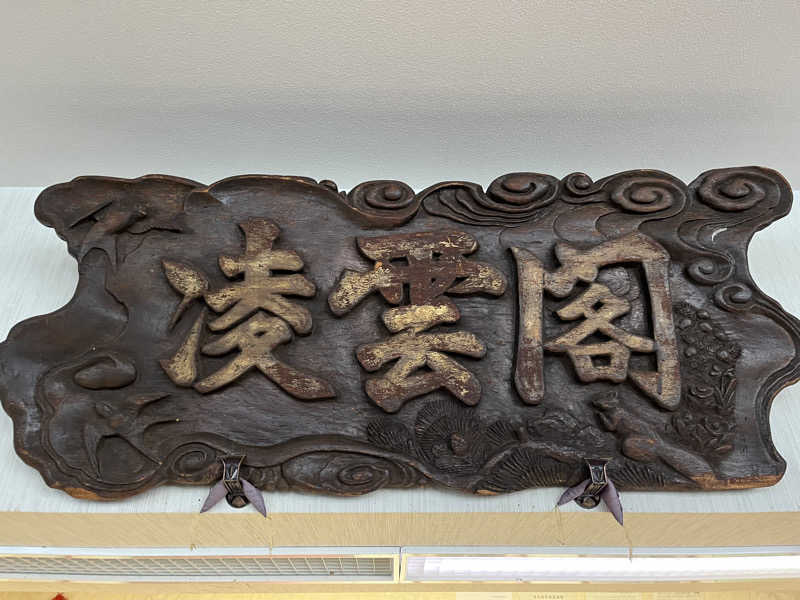 凌雲閣